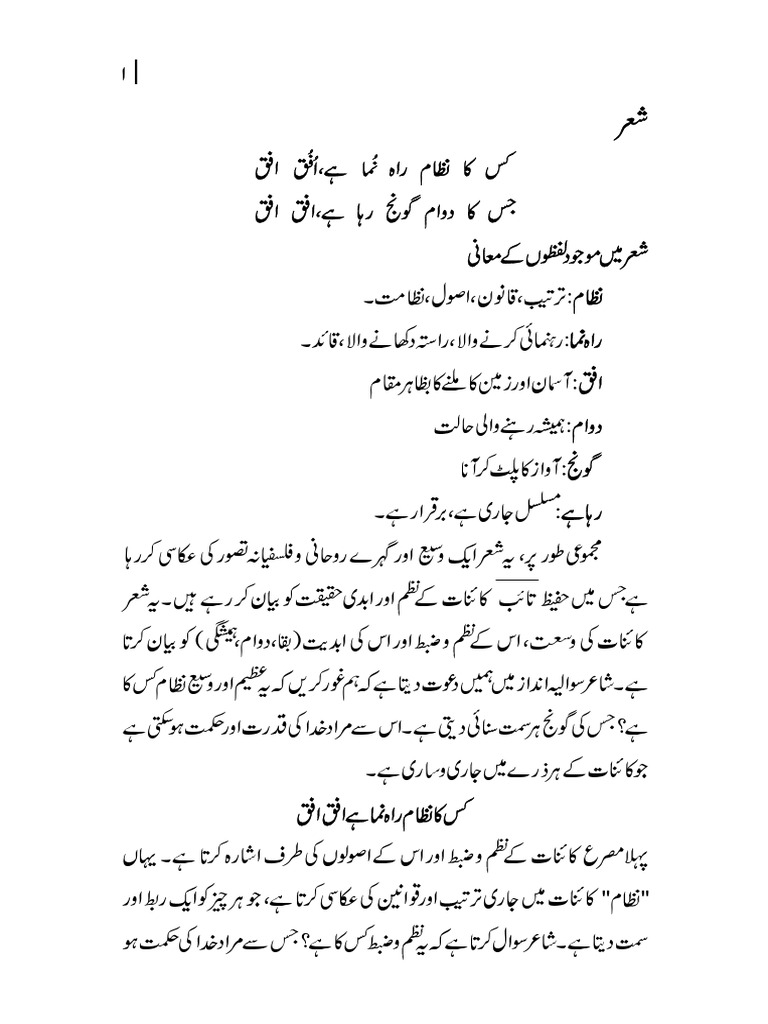 ا |
شعر
کس کا نظام راہ نُما ہے، اُفُق افق
جس کا دوام گونج رہا ہے، افق افق
شعر میں موجود لفظوں کے معانی
نظام: ترتیب، قانون، اصول، نظامت۔
راہ نما: رہنمائی کرنے والا، راستہ دکھانے والا، قائد۔
افق: آسمان اور زمین کا ملنے کا بظاہر مقام
دوام: ہمیشہ رہنے والی حالت
گونج: آواز کا پلٹ کر آنا
رہا ہے: مسلسل جاری ہے، برقرار ہے۔
مجموعی طور پر، یہ شعر ایک وسیع اور گہرے روحانی و فلسفیانہ تصور کی عکاسی کر رہا
ہے جس میں حفیظ تائب کائنات کے نظم اور ابدی حقیقت کو بیان کر رہے ہیں۔ یہ شعر
کائنات کی وسعت، اس کے نظم و ضبط اور اس کی ابدیت (بقا، دوام، ہمیشگی) کو بیان کرتا
ہے۔ شاعر سوالیہ انداز میں ہمیں دعوت دیتا ہے کہ ہم غور کریں کہ یہ عظیم اور وسیع نظام کس کا
ہے؟ جس کی گونج ہر سمت سنائی دیتی ہے۔ اس سے مراد خدا کی قدرت اور حکمت ہو سکتی ہے
جو کائنات کے ہر ذرے میں جاری و ساری ہے۔
کس کا نظام راہ نما ہے افق افق
پہلا مصرع کائنات کے نظم و ضبط اور اس کے اصولوں کی طرف اشارہ کرتا ہے۔ یہاں
"نظام" کائنات میں جاری ترتیب اور قوانین کی عکاسی کرتا ہے، جو ہر چیز کو ایک ربط اور
سمت دیتا ہے۔ شاعر سوال کرتا ہے کہ یہ نظم و ضبط کس کا ہے؟ جس سے مراد خدا کی حکمت ہو